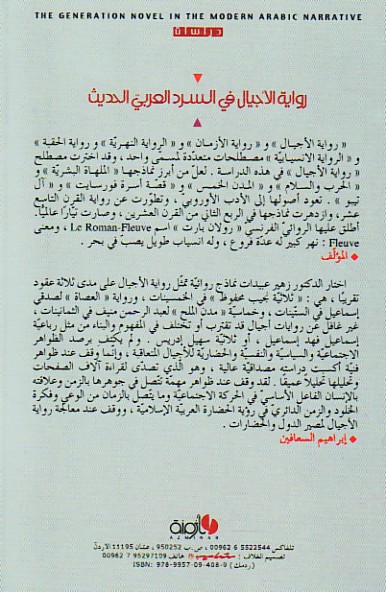 THE GENERATION NOVEL IN THE MODERN ARABIC NARRATIVE
دراسات
رواية الأجيال في السرد العربيّ الحديث
« رواية الأجيال » و « رواية الأزمان » و « الرواية النهريّة » و رواية الحقبة »
و « الرواية الانسيابيّة » مصطلحات متعدّدة لمسمّى واحد ، وقد اخترت مصطلح
« رواية الأجيال » في هذه الدراسة . لعلّ من أبرز نماذجها « الملهاة البشريّة » و
« الحرب والسلام » و « المدن الخمس » و « قصّة أسرة فورسايت » و « آل
تيبو » . تعود أصولها إلى الأدب الأوروبي ، وتطوّرت عن رواية القرن التاسع
عشر، وازدهرت نماذجها في الربع الثاني من القرن العشرين ، وصارت تيّارًا عالميًّا.
أطلق عليها الروائيّ الفرنسي « رولان بارت » اسم Le Roman-Fleuve ، ومعنى
Fleuve : نهر كبير له عدّة فروع ، وله انسياب طويل يصبّ في بحر .
المؤلّف
اختار الدكتور زهير عبيدات نماذج روائيّة تمثّل رواية الأجيال على مدى ثلاثة عقود
تقريبًا ، هي : « ثلاثيّة نجيب محفوظ » في الخمسينات ، ورواية « العصاة » لصدقي
إسماعيل في الستّينات ، وخماسيّة « مدن الملح » لعبد الرحمن منيف في الثمانينات ،
غير غافل عن روايات أجيال قد تقترب أو تختلف في المفهوم والبناء من مثل رباعيّة
إسماعيل فهد إسماعيل ، أو ثلاثيّة سهيل إدريس . ولم يكتف برصد الظواهر
الاجتماعيّة و السياسيّة و النفسيّة والحضاريّة للأجيال المتعاقبة ، وإنّما وقف عند ظواهر
فنيّة أكسبت دراسته مصداقيّة عالية ، وهو الذي تصدّى لقراءة آلاف الصفحات
وتحليلها تحليلاً عميقًا . لقد وقف عند ظواهر مهمّة تتّصل في جوهرها بالزمن وعلاقته
بالإنسان الفاعل الأساسيّ في الحركة الاجتماعيّة وما يتّصل بالزمان من الوعي وفكرة
الخلود والزمن الدائريّ في رؤية الحضارة العربيّة الإسلاميّة ، ووقف عند معالجة رواية
الأجيال لمصير الدول والحضارات .
إبراهيم السعافين
أزمنة
AZMINAH
تلفاكس 5522544 6 00962 ، ص.ب 950252 ، عمّان 11195 الأردنّ
تصميم الغلاف : هاتف 95297109 7 00962
(ردمك) ISBN: 978-9957-09-408-9